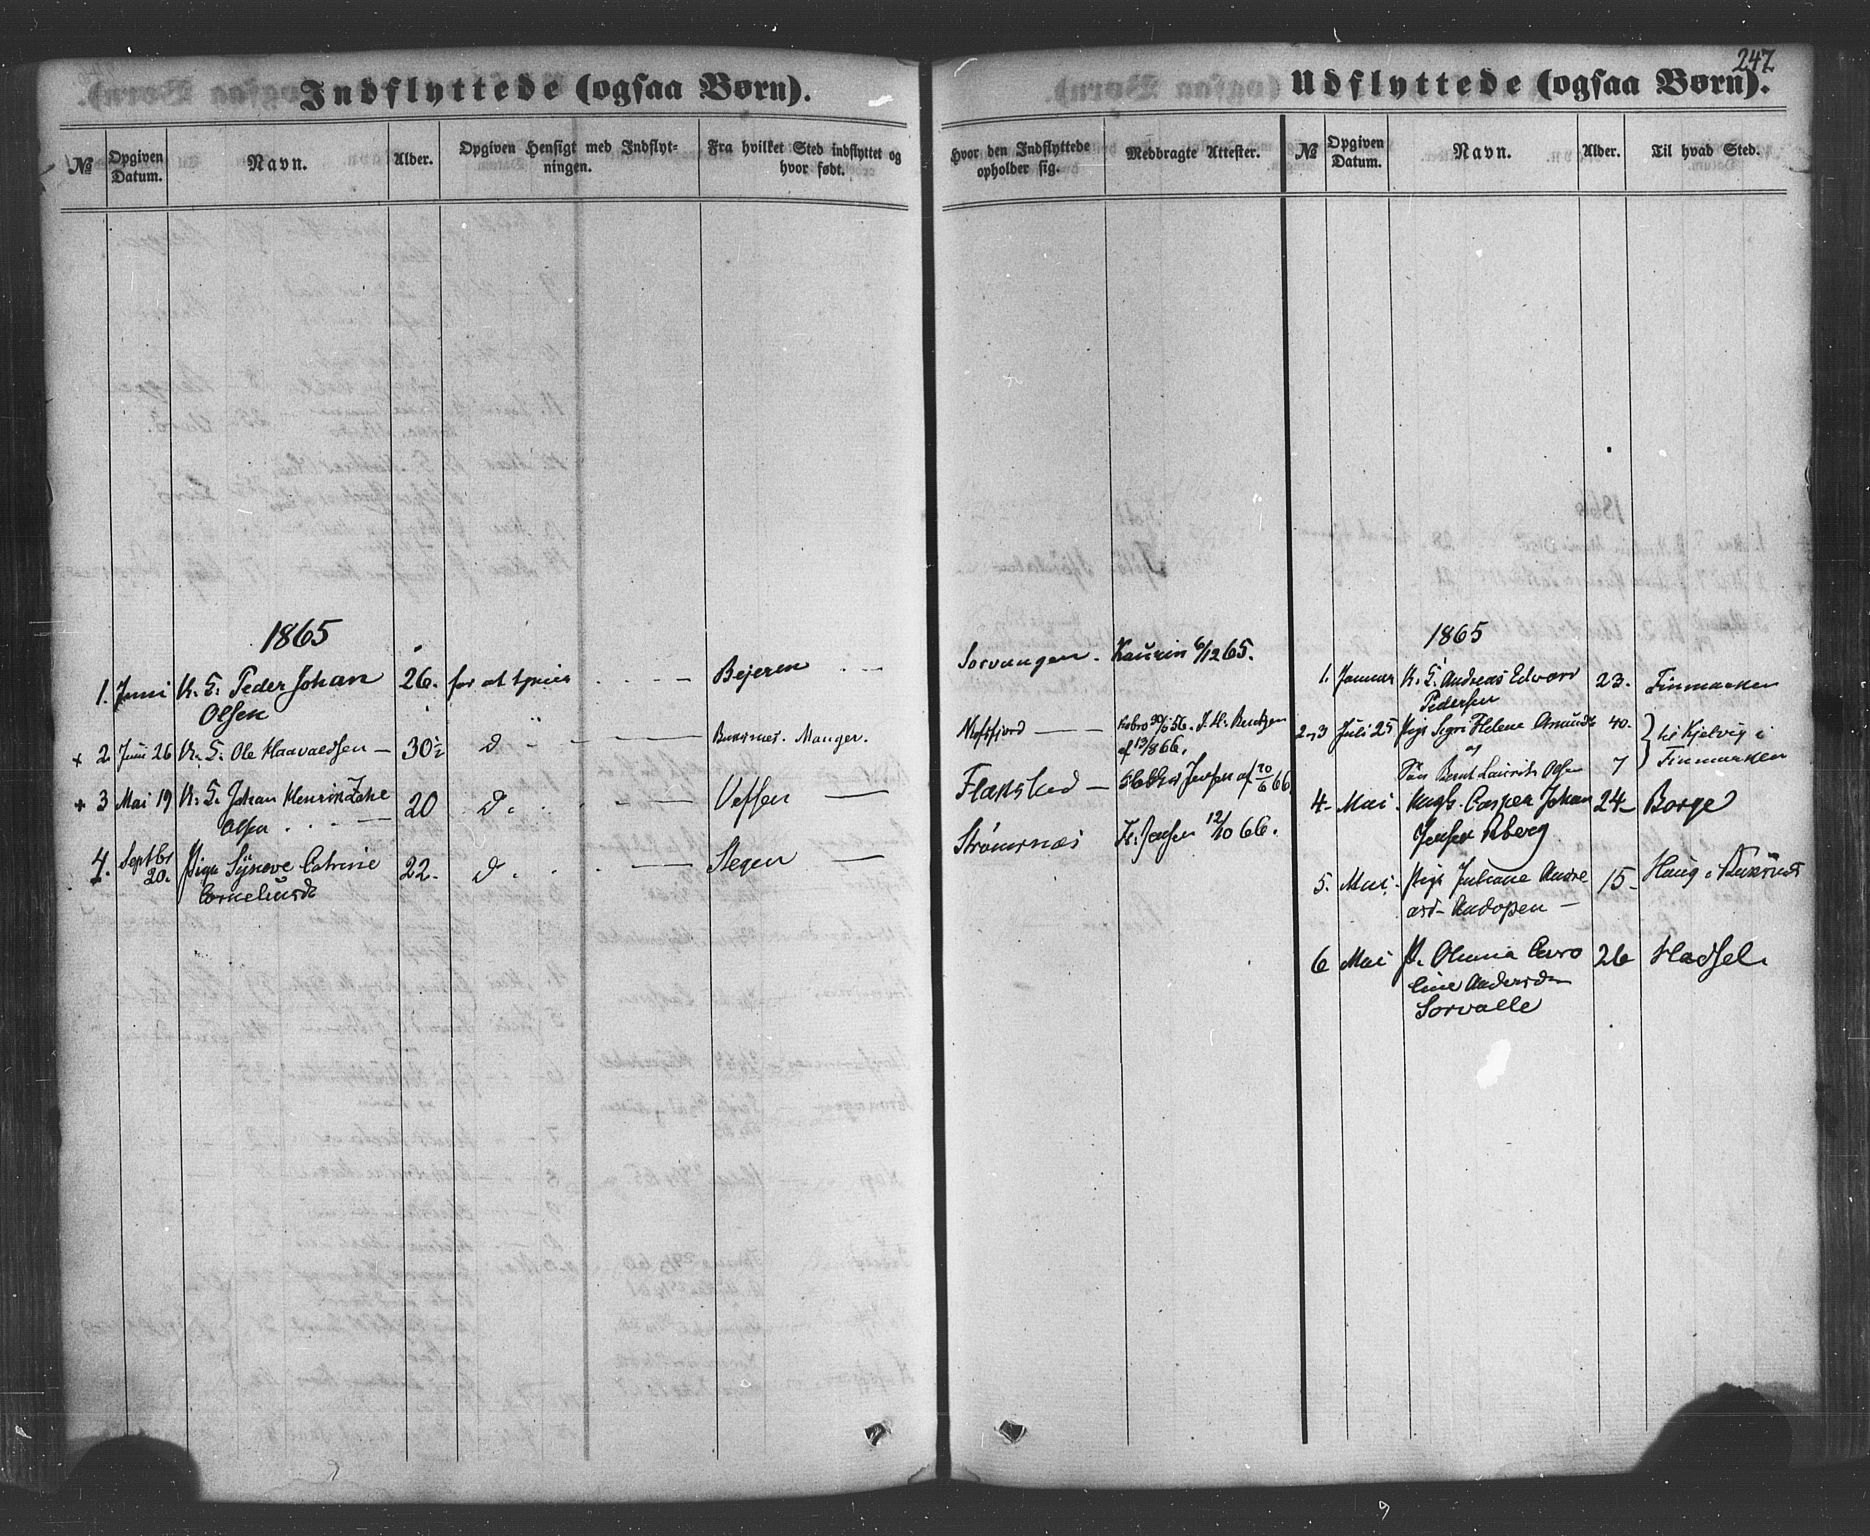 247
Indflyttede (ogsaa Børn).
Udflyttede (ogsaa Børn).
№ Opgiven Datum. Navn. Alder. Opgiven Hensigt med Indflytningen. Fra hvilket Sted indflyttet og hvor født.
Hvor den Indflyttede opholder sig. Medbragte Attester. № Opgiven Datum. Navn. Alder. Til hvad Sted.
1865
1. Juni U. K. Peder Johan 26. for at tjene Bejeren
Olsen
+ 2. Juni 26 U. K. Ole Haavaldsen — 30½ D Buksnes. Manger.
+ 3 Mai 19 U. K. Johan Henrik Zake 20 D. Vefsen —
Olsen
4. Septbr 20. Pige Synove Catrine 22. D. Stegen —
Corneliusd
Sorvaagen. Kaurin 6/12 65.
30/6 56. J. H. Bentzen
af 13/8 66.
Flakstad — Jensen af 20/6 66
Strømsnæs H. Jensen 12/10 66.
1865
1. Januar U. K. Andreas Edvard 23. Finmarken
Pedersen
2-3 Juli 25 Pige Sigri Helene Amunds 40. til Kjelvig i
og
Søn Bernt Laurits Olsen 7 Finmarken
4. Mai Ungk. Casper Johan 24 Borge
Jenssen Aberg
5. Mai. Pige Juliane Andre 15 Haug i Buksnæs
asd. Andopen —
6 Mai P. Olianna Caro 26 Hadsel.
line Andersd
Sorvalle